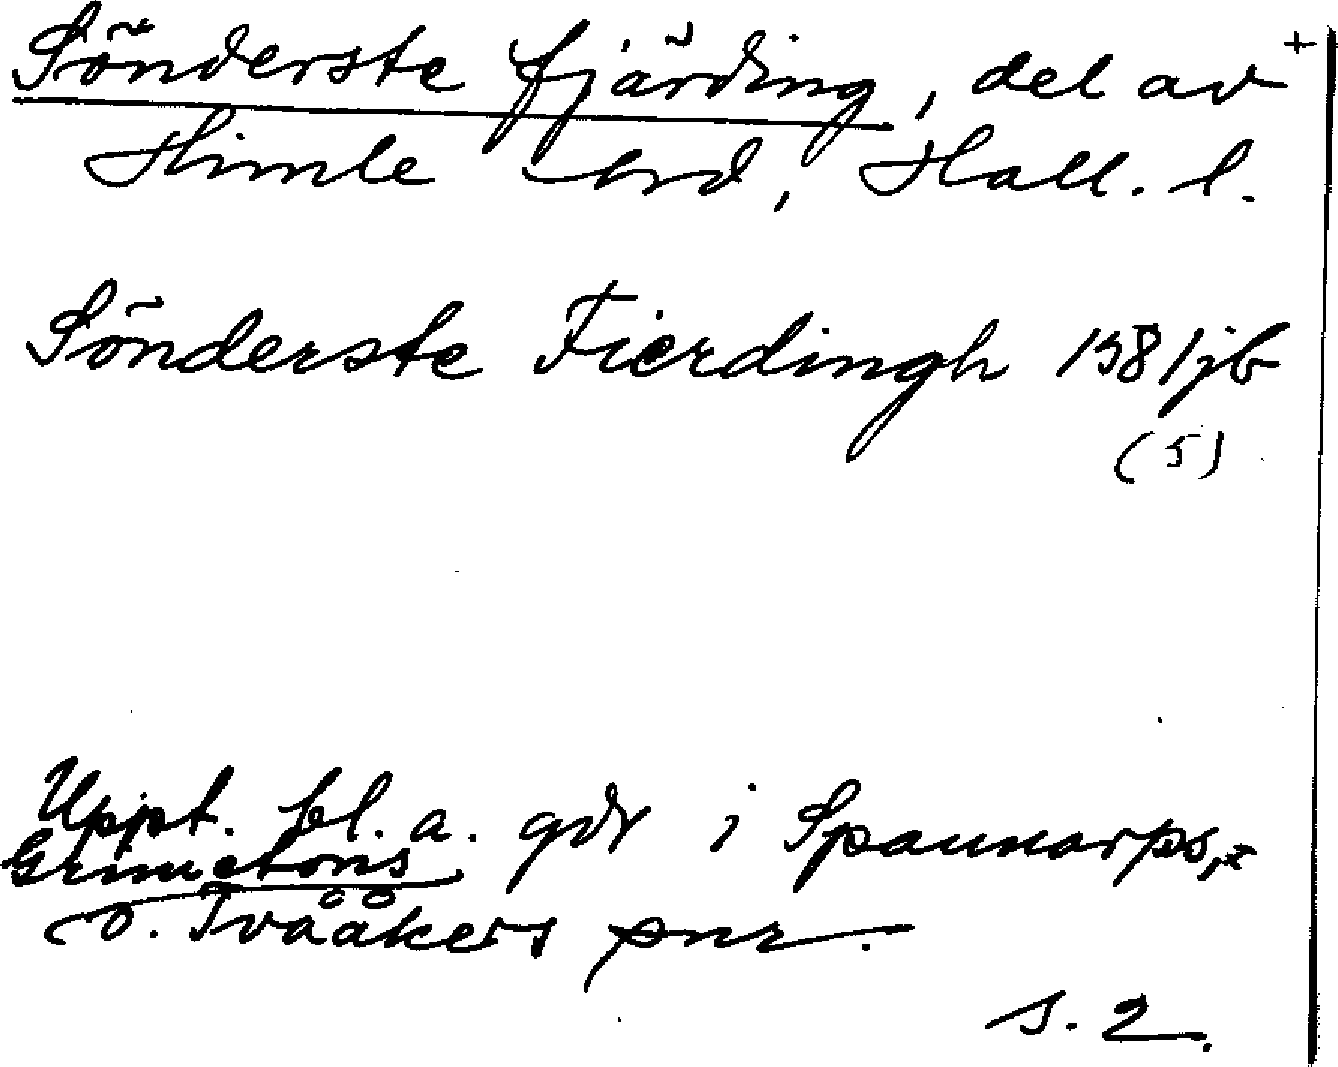 Sönderste fjärding, del av +
Himle hrd, Hall. l.
Sönderste Fierdingh 1581 jb
(5)
Uppt. bl. a. gdr i Spannarps,
Grimetons
o. Tvååkers snr.
s. 2.